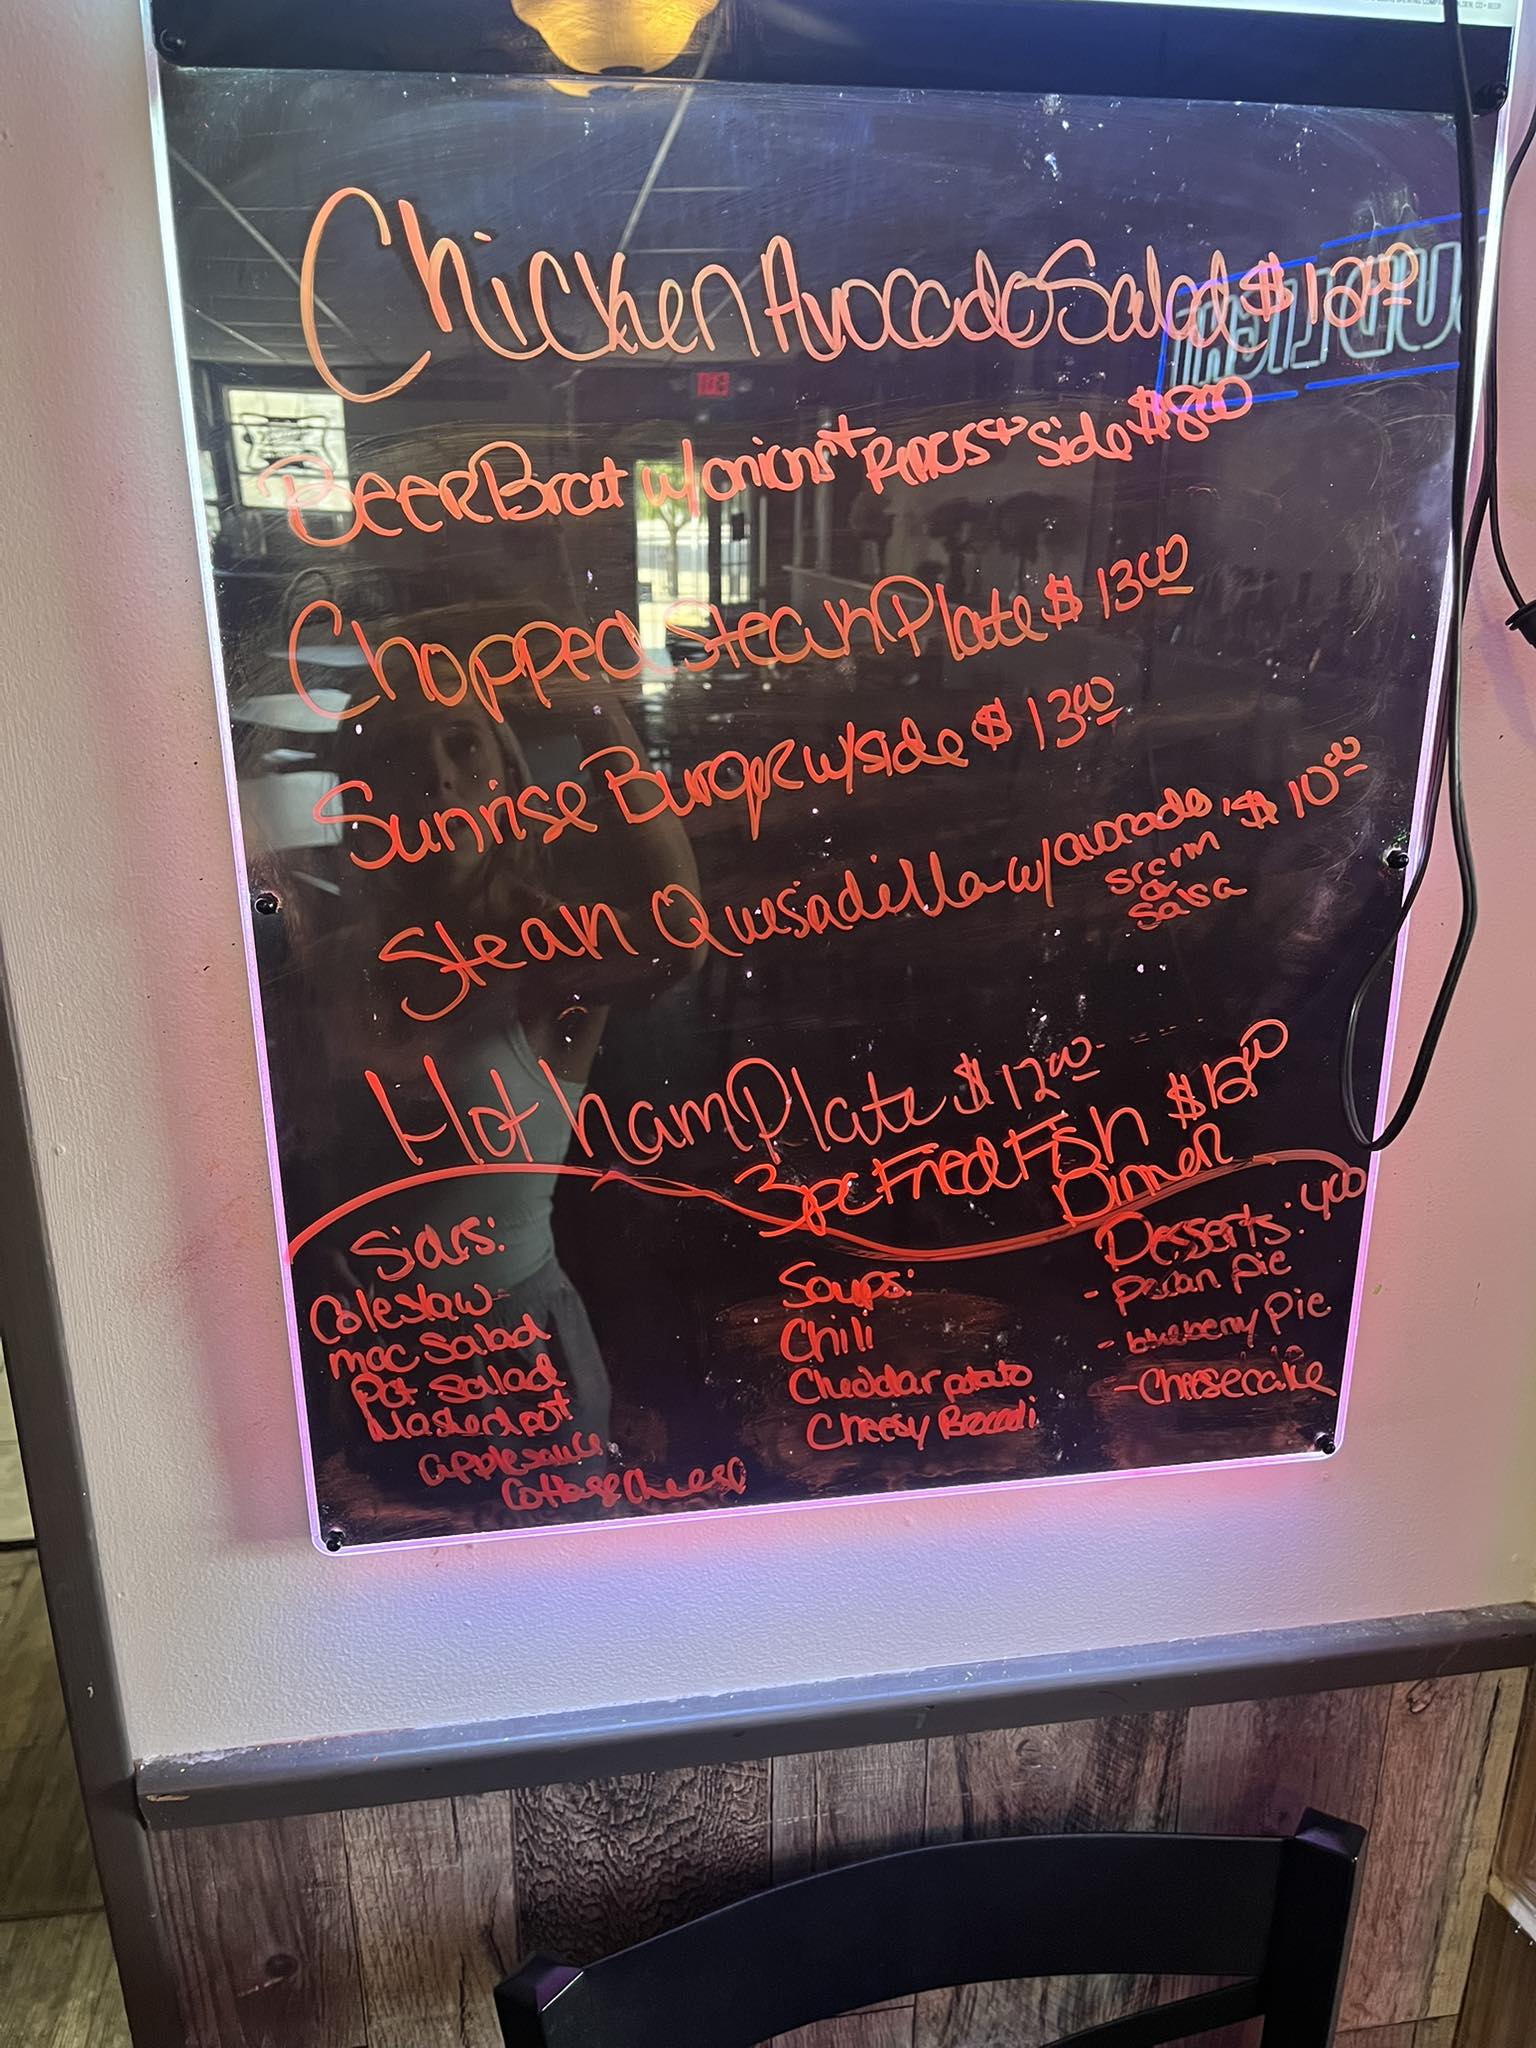 Chicken Avocado Salad $12.00
BEER Brat w/ onions + Peppers + Side $8.00
Chopped Steak Plate $13.00
Sunrise Burger w/side $13.00
Steak Quesadilla w/ avocado, $10.00
Srcrm
&
Salsa
Hot ham Plate $12.00
3pc Fried Fish $12.00
Dinner
Sides:
Coleslaw
mac Salad
Pot Salad
Mashed pot
applesauce
Cottage Cheese
Soups:
Chili
Cheddar potato
Cheesy Broccoli
Desserts: 4.00
- pecan pie
- blueberry Pie
- Cheesecake